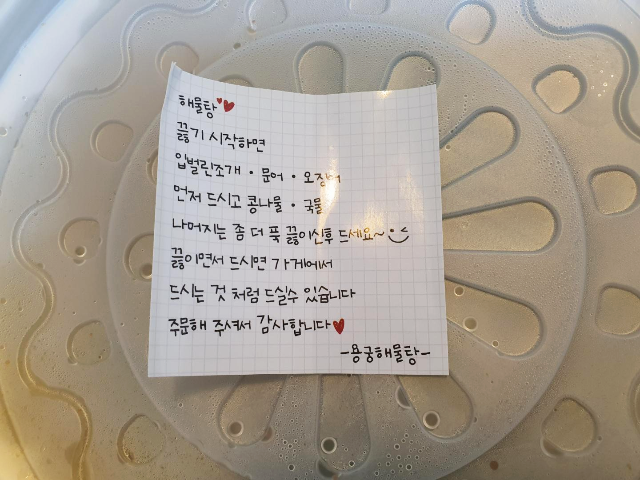 해물탕
끓기 시작하면
입벌린조개 · 문어 · 오징어
먼저 드시고 콩나물 · 국물
나머지는 좀 더 푹 끓이신후 드세요~
끓이면서 드시면 가게에서
드시는 것 처럼 드실수 있습니다
주문해 주셔서 감사합니다
-용궁해물탕-